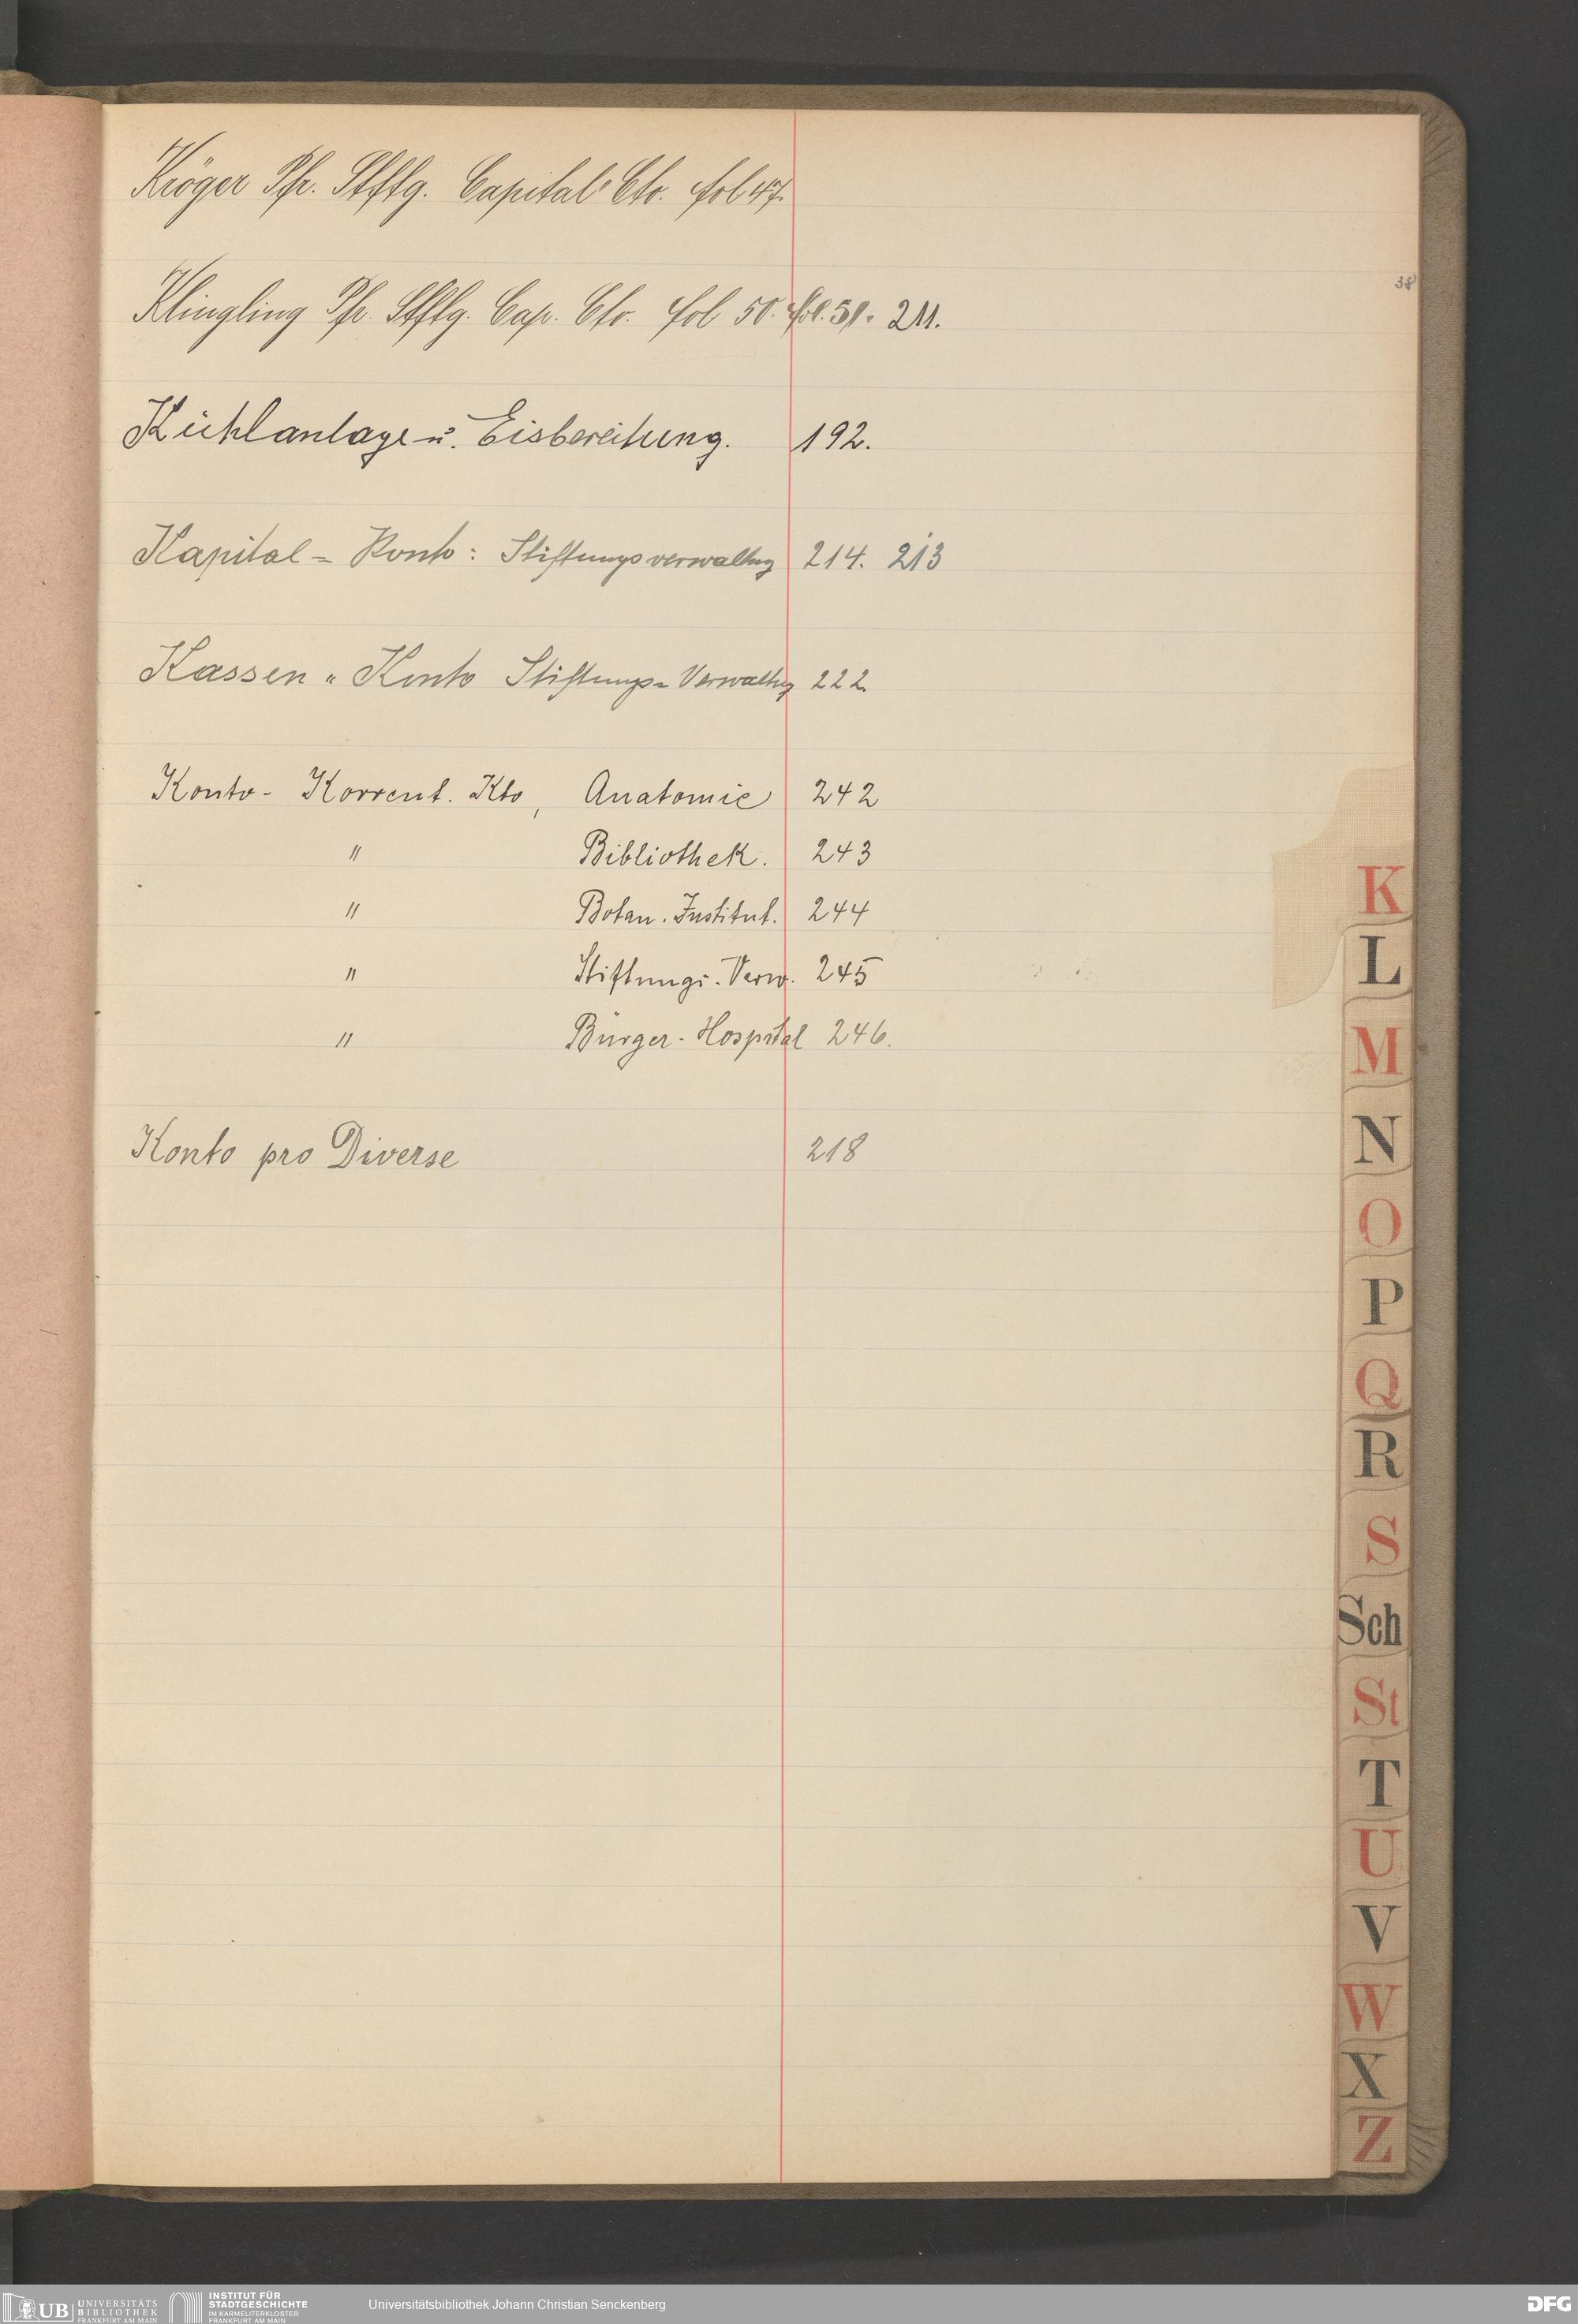 Kröger Pfr. Stftg. Capital Cto. fol 47.
38
Klingling Pfr. Stftg. Cap. Cto. fol 50. fol. 51. 211.
Kühlanlage u. Eisbereitung. 192.
Kapital = Konto: Stiftungsverwaltng 214. 213
Kassen = Konto Stiftungs=Verwaltng 222.
Konto - Korrent. Kto, Anatomie 242
" Bibliothek. 243
" Botan. Institut. 244
" Stiftungs-Verw. 245
" Bürger-Hospital 246.
Konto pro Diverse 218
K
L
M
N
O
P
Q
R
S
Sch
St
T
U
V
W
X
Z
UB UNIVERSITÄTS BIBLIOTHEK FRANKFURT AM MAIN
INSTITUT FÜR STADTGESCHICHTE IM KARMELITERKLOSTER FRANKFURT AM MAIN
Universitätsbibliothek Johann Christian Senckenberg
DFG